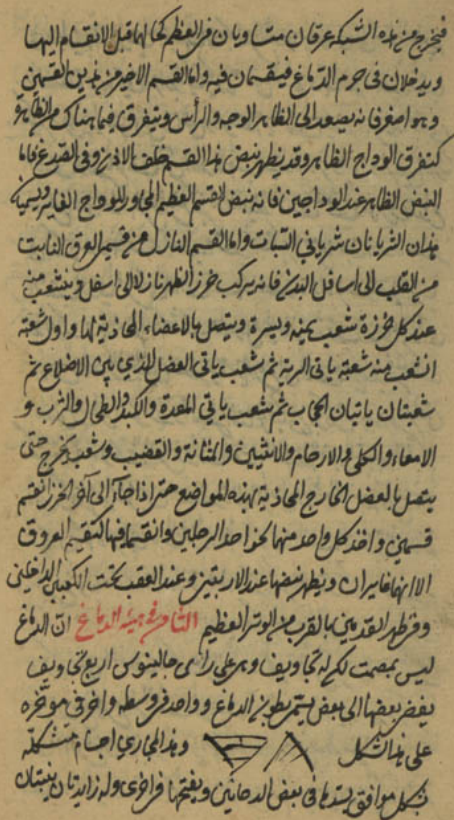 فيخرج من هذه الشبكة عرقان متساويان في العظم كحالهما قبل الانقسام اليها
ويدخلان في جرم الدماغ فينقسمان فيه واما القسم الاخير من هذين القسمين
وهو اصغر فانه يصعد الى الظاهر الوجه والرأس ويتفرق فيما هناك من الظاهرة
كتفرق الوداج الظاهر وقد يظهر نبض هذا القسم خلف الاذن وفي الصدغ فاما
النبض الظاهر عند الوداجين فانه نبض القسم العظيم المجاور للوداج الغاير ويسميان
هذان الشريانان شرياني السبات واما القسم النازل من قسمي العرق النابت
من القلب الى اسافل البدن فانه يركب خرز الظهر نازلا الى اسفل ويتشعب منه
عند كل خرزة شعب يمنة ويسرة ويتصل بالاعضاء المحاذية لها واول شعبة
انشعب منه شعبة ياتي الرية ثم شعب ياتي العضل الذي بين الاضلاع ثم
شعبتان ياتيان الحجاب ثم شعب ياتي المعدة والكبد والطحال والثرب و
الامعاء والكلى والارحام والانثيين والمثانة والقضيب وشعب يخرج حتى
يتصل بالعضل الخارج المحاذية بهذه المواضع حتى اذا جآء الى آخر الخرز انقسم
قسمين واخذ كل واحد منهما نحو احد الرجلين وانقسما فيها كتقسيم العروق
الا انهما غايران ويظهر نبضها عند الاربتين وعند العقب تحت الكعبين الداخلين
وفي ظهر القدمين بالقرب من الوتر العظيم الثامن في هيئة الدماغ ان الدماغ
ليس بمصمت لكن له تجاويف وهي على راى جالينوس اربع تجاويف
يفضي بعضها الى بعض يسمى بطون الدماغ وواحد في وسطه واخر في مؤخره
على هذا الشكل وبهذا المجاري اجسام متشكلة
بشكل موافق يسدها في بعض الاحايين ويفتحها في اخرى وله زايدتان ينبتان